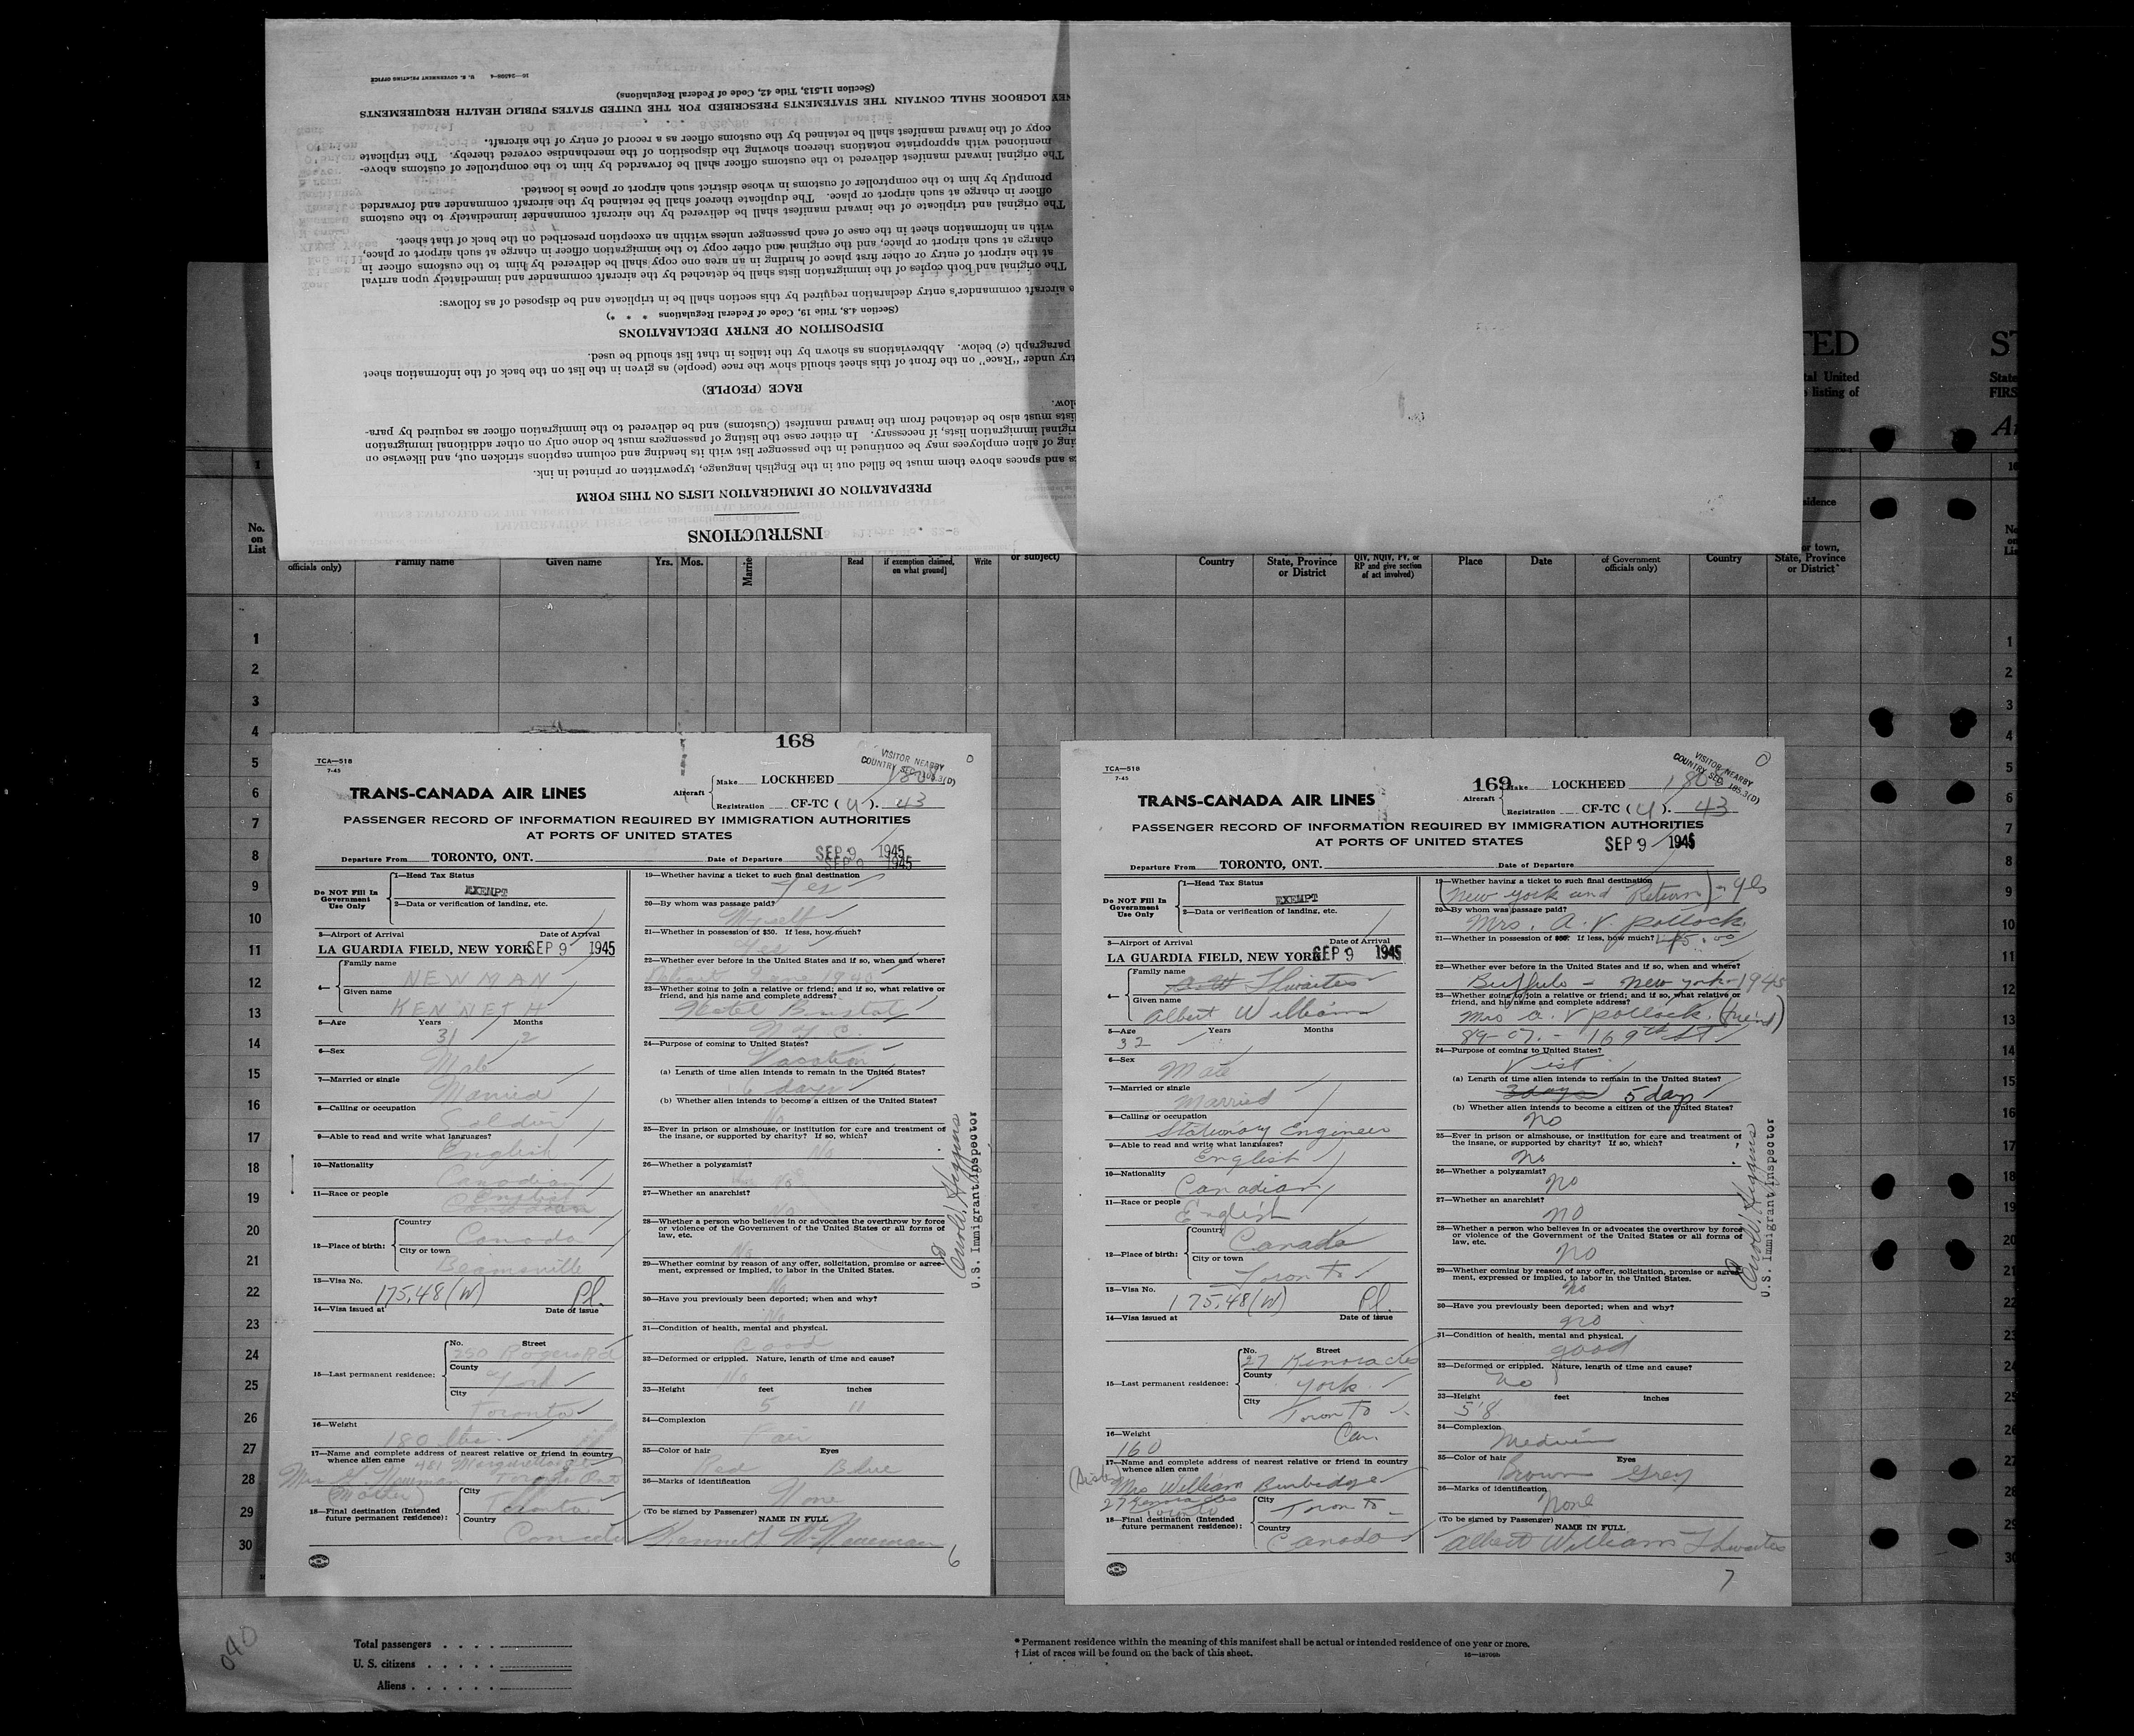 INSTRUCTIONS
PREPARATION OF IMMIGRATION LISTS ON THIS FORM
s and spaces above them must be filled out in the English language, typewritten or printed in ink.
ing of alien employees may be continued in the passenger list with its heading and column captions stricken out, and likewise on
riginal immigration lists, if necessary. In either case the listing of passengers must be done only on other additional immigration
ists must also be detached from the inward manifest (Customs) and be delivered to the immigration officer as required by para-
low.
RACE (PEOPLE)
try under "Race" on the front of this sheet should show the race (people) as given in the list on the back of the information sheet
paragraph (c) below. Abbreviations as shown by the italics in that list should be used.
DISPOSITION OF ENTRY DECLARATIONS
(Section 4.8, Title 19, Code of Federal Regulations * * *)
e aircraft commander's entry declaration required by this section shall be in triplicate and be disposed of as follows:
The original and both copies of the immigration lists shall be detached by the aircraft commander and immediately upon arrival
at the airport of entry or other first place of landing in an area one copy shall be delivered by him to the customs officer in
charge at such airport or place, and the original and other copy to the immigration officer in charge at such airport or place,
with an information sheet in the case of each passenger unless within an exception prescribed on the back of that sheet.
The original and triplicate of the inward manifest shall be delivered by the aircraft commander immediately to the customs
officer in charge at such airport or place. The duplicate thereof shall be retained by the aircraft commander and forwarded
promptly by him to the comptroller of customs in whose district such airport or place is located.
The original inward manifest delivered to the customs officer shall be forwarded by him to the comptroller of customs above-
mentioned with appropriate notations thereon showing the disposition of the merchandise covered thereby. The triplicate
copy of the inward manifest shall be retained by the customs officer as a record of entry of the aircraft.
NEY LOGBOOK SHALL CONTAIN THE STATEMENTS PRESCRIBED FOR THE UNITED STATES PUBLIC HEALTH REQUIREMENTS
(Section 11.513, Title 42, Code of Federal Regulations)
16—24908-4 U. S. GOVERNMENT PRINTING OFFICE
TED ST
tal United State
listing of FIRS
No. on List
officials only) Family name Given name Yrs. Mos. Marrie Read if exemption claimed, on what ground] Write or subject) Country State, Province or District QIV, NQIV, PV, or RP and give section of act involved) Place Date of Government officials only) Country or town, State, Province or District*
168
TCA—518
7-45
VISITOR NEARBY
COUNTRY SEC.
TRANS-CANADA AIR LINES
Aircraft Make LOCKHEED
Registration CF-TC (U). 43
PASSENGER RECORD OF INFORMATION REQUIRED BY IMMIGRATION AUTHORITIES
AT PORTS OF UNITED STATES
Departure From TORONTO, ONT. Date of Departure SEP 9 1945
SEP 9 1945
Do NOT Fill In Government Use Only
1—Head Tax Status
EXEMPT
2—Data or verification of landing, etc.
3—Airport of Arrival Date of Arrival
LA GUARDIA FIELD, NEW YORK SEP 9 1945
4— Family name
NEWMAN
Given name
KENNETH
5—Age Years Months
31 2
6—Sex
Male
7—Married or single
Married
8—Calling or occupation
Soldier
9—Able to read and write what languages?
English
10—Nationality
Canadian
11—Race or people
English
Canadian
12—Place of birth: Country
Canada
City or town
Beamsville
13—Visa No.
175.48(W) Pl.
14—Visa issued at Date of issue
15—Last permanent residence: No. Street
250 Rogers Rd
County
York
City
Toronto
16—Weight
180 lbs.
17—Name and complete address of nearest relative or friend in country
whence alien came 481
Mrs Newman Toronto Ont
(Mother)
18—Final destination (Intended future permanent residence): City
Toronto
Country
Canada
19—Whether having a ticket to such final destination
Yes
20—By whom was passage paid?
Myself
21—Whether in possession of $50. If less, how much?
Yes
22—Whether ever before in the United States and if so, when and where?
Detroit June 1940
23—Whether going to join a relative or friend; and if so, what relative or
friend, and his name and complete address?
Hotel Bristol
N.Y.C.
24—Purpose of coming to United States?
Vacation
(a) Length of time alien intends to remain in the United States?
6 days
(b) Whether alien intends to become a citizen of the United States?
No
25—Ever in prison or almshouse, or institution for care and treatment of
the insane, or supported by charity? If so, which?
No
26—Whether a polygamist?
No
27—Whether an anarchist?
No
28—Whether a person who believes in or advocates the overthrow by force
or violence of the Government of the United States or all forms of
law, etc.
No
29—Whether coming by reason of any offer, solicitation, promise or agree-
ment, expressed or implied, to labor in the United States.
No
30—Have you previously been deported; when and why?
No
31—Condition of health, mental and physical.
Good
32—Deformed or crippled. Nature, length of time and cause?
No
33—Height feet inches
5 11
34—Complexion
Fair
35—Color of hair Eyes
Red Blue
36—Marks of identification
None
(To be signed by Passenger) NAME IN FULL
Kenneth W Newman
6
U.S. Immigrant Inspector
169
TCA—518
7-45
VISITOR NEARBY
COUNTRY SEC. 185.3(D)
TRANS-CANADA AIR LINES
Aircraft Make LOCKHEED
Registration CF-TC (U). 43
PASSENGER RECORD OF INFORMATION REQUIRED BY IMMIGRATION AUTHORITIES
AT PORTS OF UNITED STATES
SEP 9 1945
Departure From TORONTO, ONT. Date of Departure
Do NOT Fill In Government Use Only
1—Head Tax Status
EXEMPT
2—Data or verification of landing, etc.
3—Airport of Arrival Date of Arrival
LA GUARDIA FIELD, NEW YORK SEP 9 1945
4— Family name
Thwaites
Given name
Albert William
5—Age Years Months
32
6—Sex
Male
7—Married or single
Married
8—Calling or occupation
Stationary Engineer
9—Able to read and write what languages?
English
10—Nationality
Canadian
11—Race or people
English
12—Place of birth: Country
Canada
City or town
Toronto
13—Visa No.
175.48(W) Pl.
14—Visa issued at Date of issue
15—Last permanent residence: No. Street
27 Kenora cres
County
York
City
Toronto
Can.
16—Weight
160
17—Name and complete address of nearest relative or friend in country
whence alien came
(Sister) Mrs William Burbidge
27 Kenora cres
Toronto
18—Final destination (Intended future permanent residence): City
Toronto
Country
Canada
19—Whether having a ticket to such final destination
(New York and Return) - yes
20—By whom was passage paid?
Mrs. A. V pollock
21—Whether in possession of $50. If less, how much? 45.00
22—Whether ever before in the United States and if so, when and where?
Buffalo - New york - 1945
23—Whether going to join a relative or friend; and if so, what relative or
friend, and his name and complete address?
Mrs A. V pollock. (friend)
89-07 - 169th ST
24—Purpose of coming to United States?
Visit
(a) Length of time alien intends to remain in the United States?
3 days 5 days
(b) Whether alien intends to become a citizen of the United States?
No
25—Ever in prison or almshouse, or institution for care and treatment of
the insane, or supported by charity? If so, which?
No
26—Whether a polygamist?
No
27—Whether an anarchist?
NO
28—Whether a person who believes in or advocates the overthrow by force
or violence of the Government of the United States or all forms of
law, etc.
no
29—Whether coming by reason of any offer, solicitation, promise or agree-
ment, expressed or implied, to labor in the United States.
no
30—Have you previously been deported; when and why?
no
31—Condition of health, mental and physical.
good
32—Deformed or crippled. Nature, length of time and cause?
no
33—Height feet inches
5'8
34—Complexion
Medium
35—Color of hair Eyes
Brown Grey
36—Marks of identification
None
(To be signed by Passenger) NAME IN FULL
Albert William Thwaites
7
U.S. Immigrant Inspector
1
2
3
4
5
6
7
8
9
10
11
12
13
14
15
16
17
18
19
20
21
22
23
24
25
26
27
28
29
30
040
Total passengers
U. S. citizens
Aliens
* Permanent residence within the meaning of this manifest shall be actual or intended residence of one year or more.
† List of races will be found on the back of this sheet.